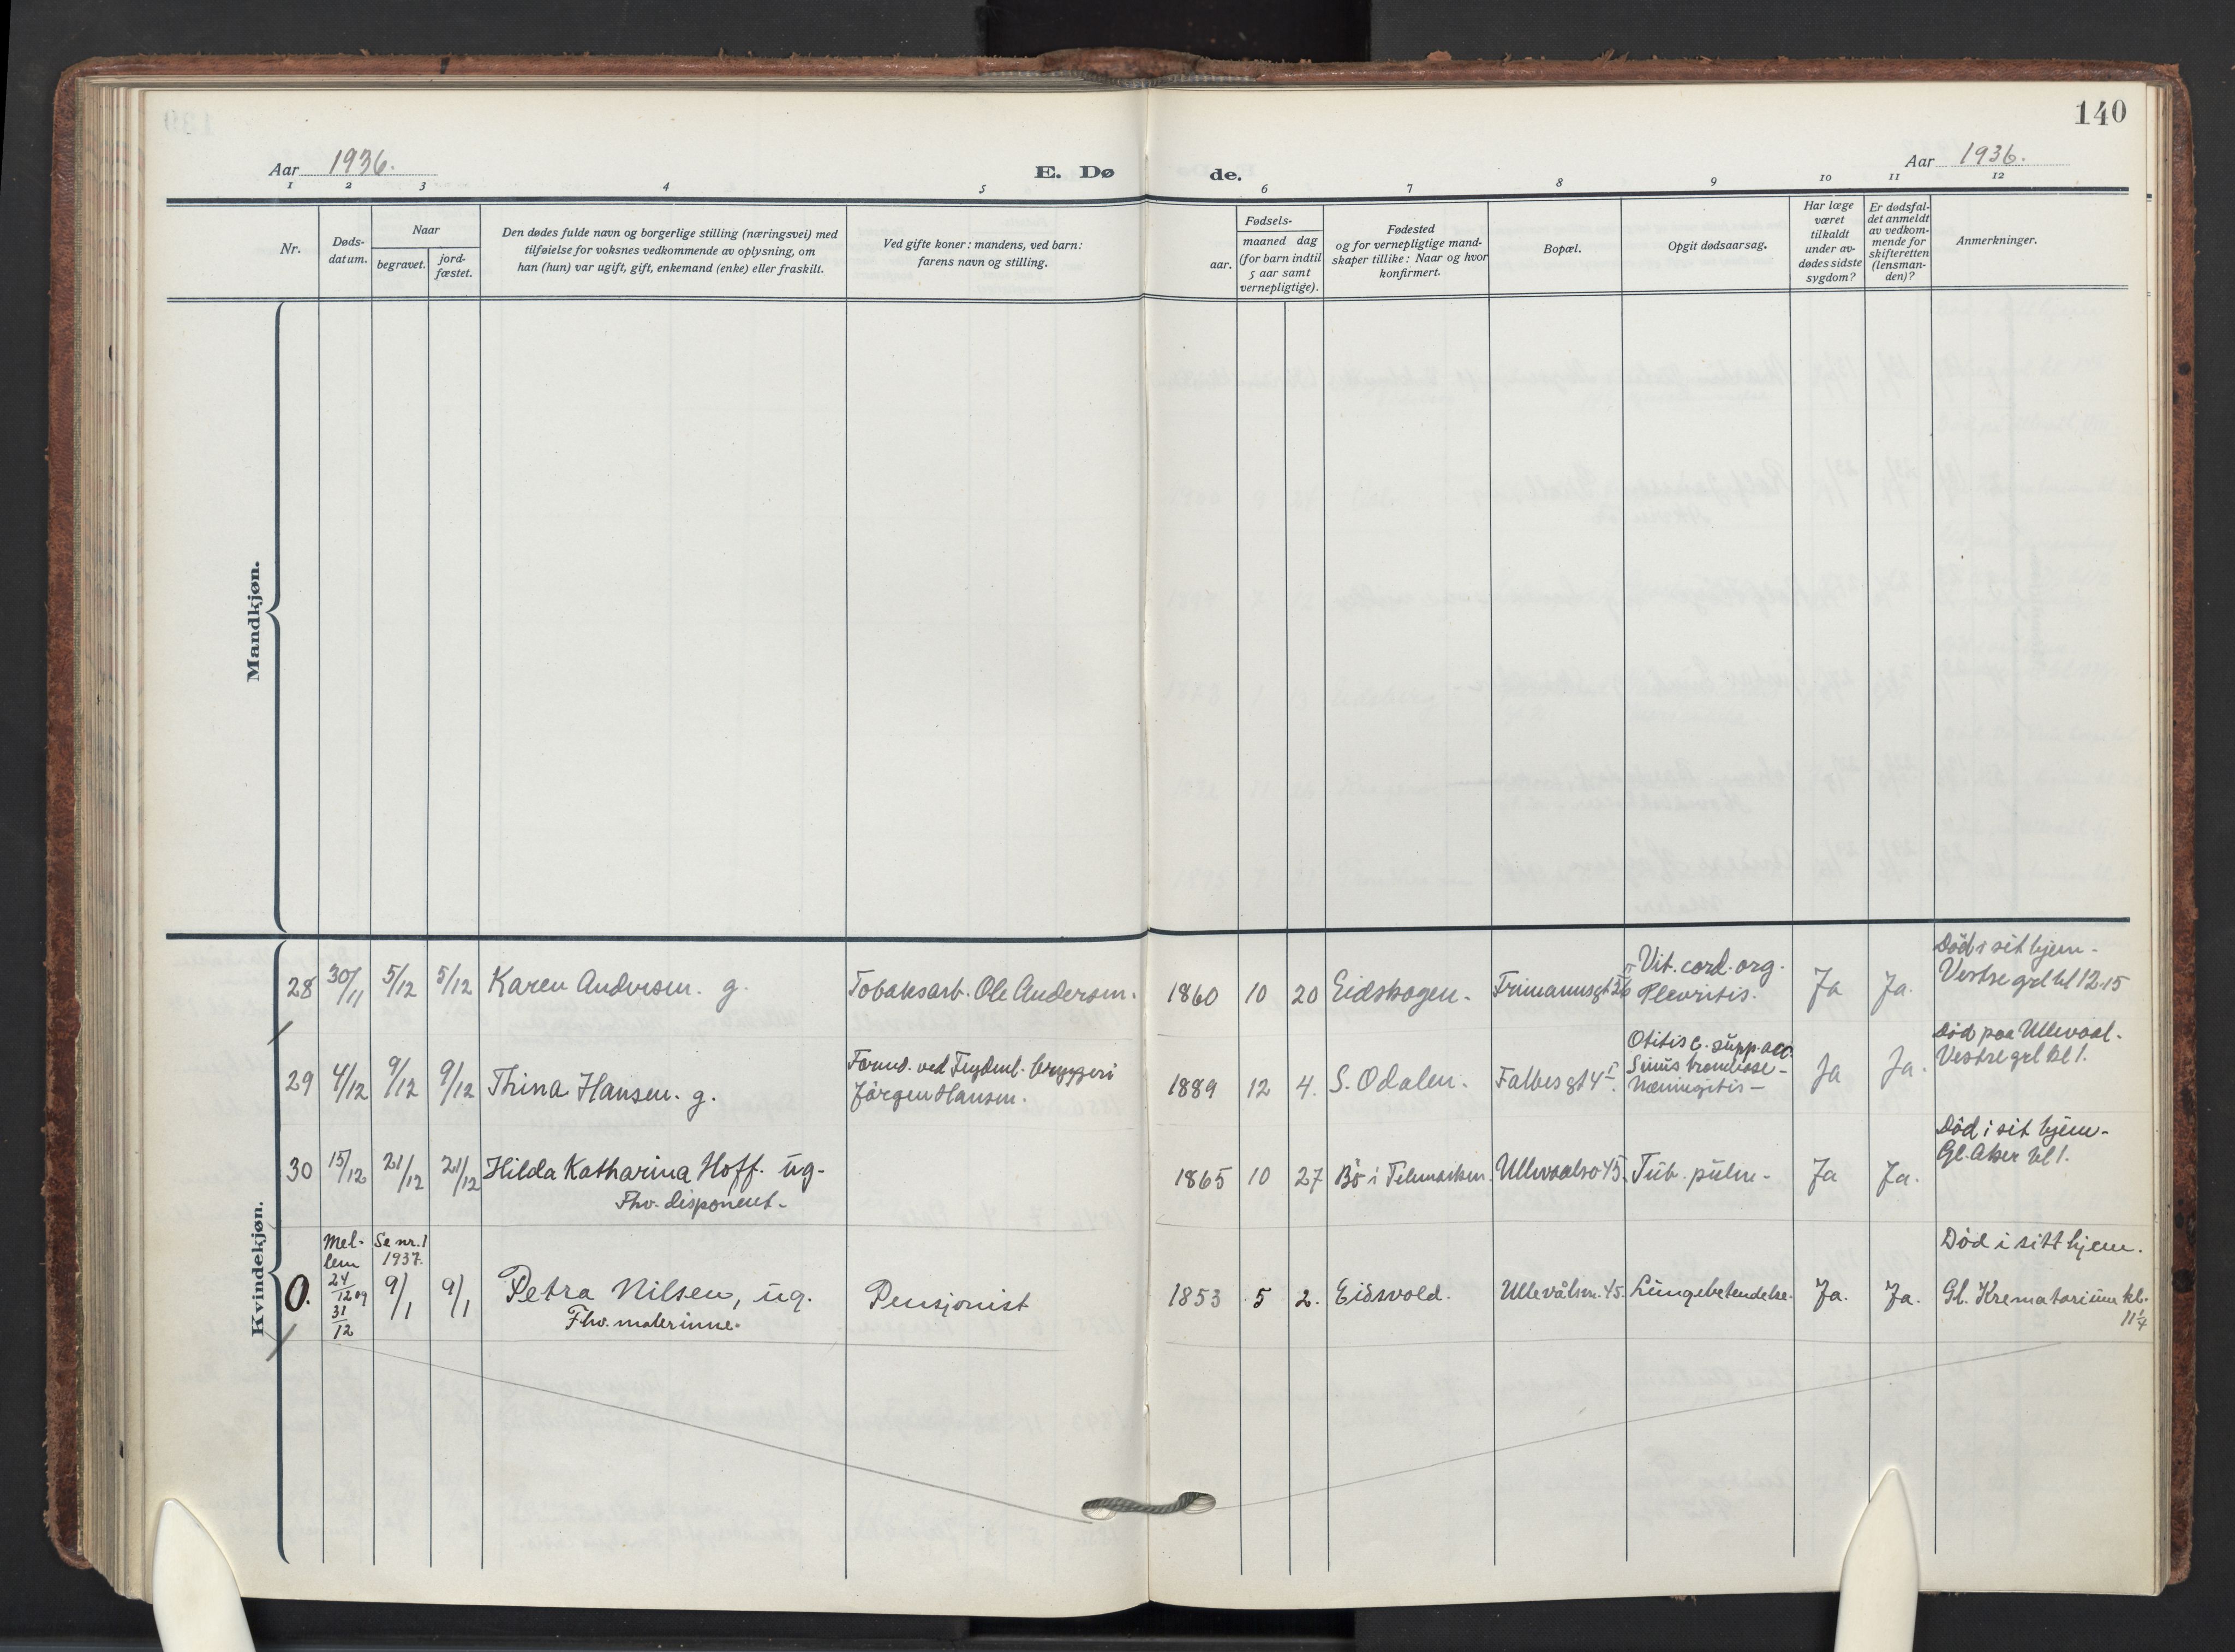 140
Aar 1936.
E. Dø
de.
Aar 1936.
1 2 3 4 5 6 7 8 9 10 11 12
Nr.
Døds-
datum.
Naar
begravet.
jord-
fæstet.
Den dødes fulde navn og borgerlige stilling (næringsvei) med
tilføielse for voksnes vedkommende av oplysning, om
han (hun) var ugift, gift, enkemand (enke) eller fraskilt.
Ved gifte koner: mandens, ved barn:
farens navn og stilling.
Fødsels-
aar.
maaned dag
(for barn indtil
5 aar samt
vernepligtige).
Fødested
og for vernepligtige mand-
skaper tillike: Naar og hvor
konfirmert.
Bopæl.
Opgit dødsaarsag.
Har læge
været
tilkaldt
under av-
dødes sidste
sygdom?
Er dødsfal-
det anmeldt
av vedkom-
mende for
skifteretten
(lensman-
den)?
Anmerkninger.
Mandkjøn.
Kvindekjøn.
28 30/11 5/12 5/12 Karen Andersen. g. Tobaksarb. Ole Andersen. 1860 10 20 Eidskogen. Frimannsgt 26 II
Vit. cord. org.
Plevritis.
Ja Ja.
Død i sit hjem-
Vestre grl kl 12.15
29 4/12 9/12 9/12 Thina Hansen. g.
Formd. ved Frydenl. bryggeri
Jörgen Hansen.
1889 12 4. S. Odalen. Falbesgt 4 I.
Otitis c. supp. acc.
Sinus trombose-
Meningitis-
Ja Ja.
Død paa Ullevaal.
Vestre grl kl 1.
30 15/12 21/12 21/12 Hilda Katharina Hoff. ug-
Fhv. disponent-
1865 10 27 Bö i Telemarken. Ullevaalsv 45. Tub. pulm- Ja Ja.
Död i sit hjem-
Gl. Aker kl 1.
0.
Mel-
lem
24/12 og
31/12
Se nr. 1
1937.
9/1 9/1 Petra Nilsen, ug.
Fhv. malerinne.
Pensjonist 1853 5 2. Eidsvold. Ullevålsvn. 45. Lungebetendelse. Ja. Ja.
Död i sitt hjem.
Gl. Krematorium kl.
11 1/4